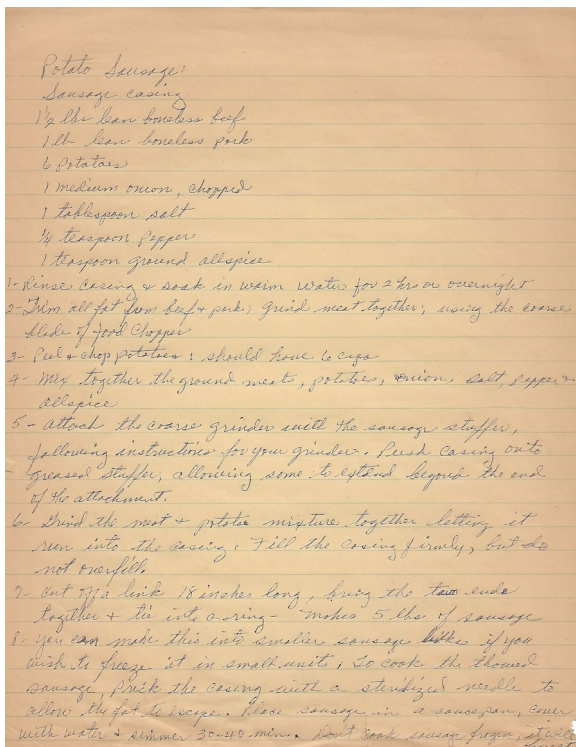 Potato Sausage:
Sausage casing
1½ lbs lean boneless beef
1 lb lean boneless pork
6 Potatoes
1 medium onion, chopped
1 tablespoon salt
¼ teaspoon Pepper
1 teaspoon ground allspice
1- Rinse casing & soak in warm water for 2 hrs or overnight
2- Trim all fat from beef & pork; grind meat together; using the coarse
blade of food chopper
3- Peel & chop potatoes: should have 6 cups
4- Mix together the ground meats, potatoes, onion, salt, pepper &
allspice
5- Attach the coarse grinder with the sausage stuffer,
following instructions for your grinder. Push casing onto
greased stuffer, allowing some to extend beyond the end
of the attachment.
6- Grind the meat & potato mixture together letting it
run into the casing. Fill the casing firmly, but do
not overfill.
7- Cut off a link 18 inches long, bring the two ends
together & tie into a ring - Makes 5 lbs of sausage
8- you can make this into smaller sausage links if you
wish to freeze it in small units. To cook the thawed
sausage, Prick the casing with a sterilized needle to
allow the fat to escape. Place sausage in a saucepan, cover
with water & simmer 30-40 min. Don't cook sausage frozen, it will